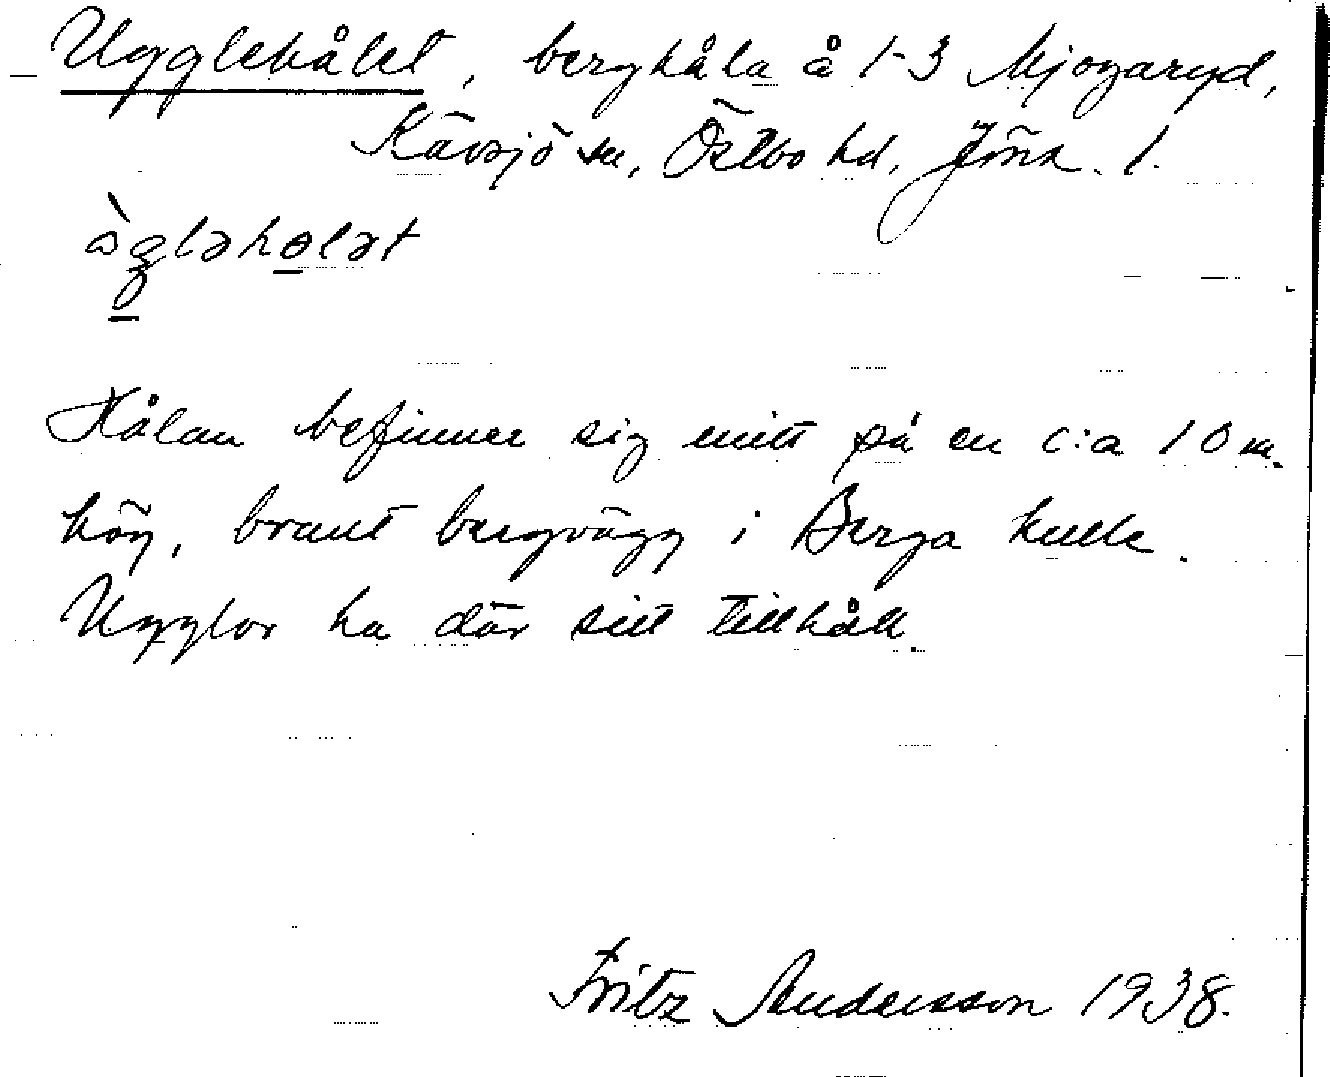 Ugglehålet, berghåla å 1-3 Mjogaryd,
Kävsjö sn, Östbo hd, Jönk. l.
ògləholət
Hålan befinner sig mitt på en c:a 10 m.
hög, brant bergvägg i Berga kulle.
Ugglor ha där sitt tillhåll.
Fritz Andersson 1938.